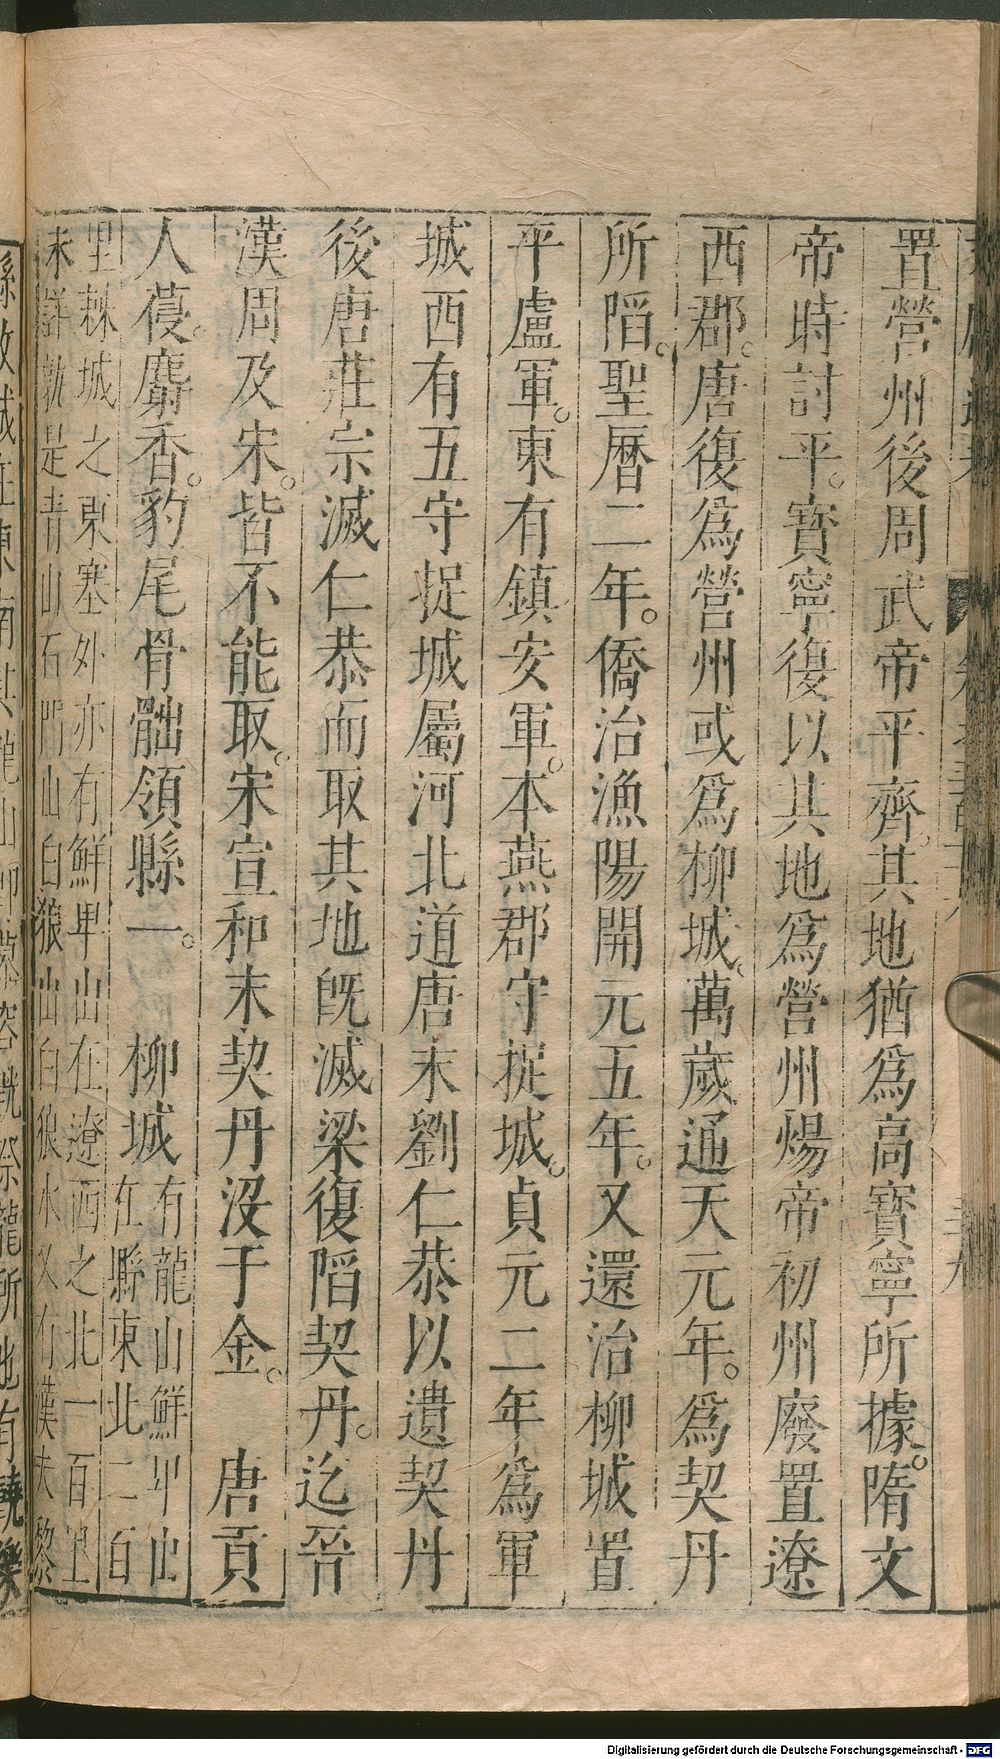 置營州後周武帝平齊。其地猶爲高寶寧所據。隋文
帝時討平。寶寧復以其地爲營州煬帝初州廢置遼
西郡。唐復爲營州或爲柳城、萬歲通天元年。爲契丹
所䧟。聖曆二年。僑治漁陽開元五年。又還治柳城置
平盧軍。東有鎮安軍。本燕郡守捉城。貞元二年爲軍
城西有五守捉城屬河北道唐末劉仁恭以遺契丹
後唐莊宗滅仁恭而取其地旣滅梁復䧟契丹。迄晉
漢周及宋。皆不能取。宋宣和末契丹沒于金。 唐貢
人葠。麝香。豹尾骨䯏領縣一。 柳城 有龍山鮮卑山
在縣東北二百
里棘城之東塞外亦有鮮卑山在遼西之北一百里
未詳孰是青山石門山白狼山白狼水又有漢夫黎
Digitalisierung gefördert durch die Deutsche Forschungsgemeinschaft - DFG